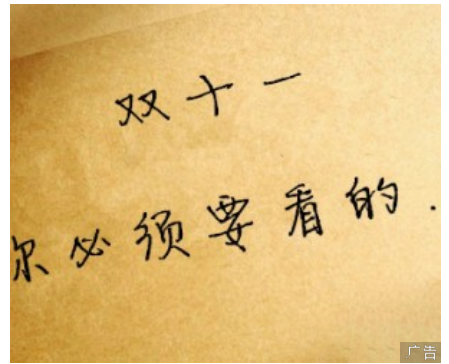 双十一
你必须要看的.
广告